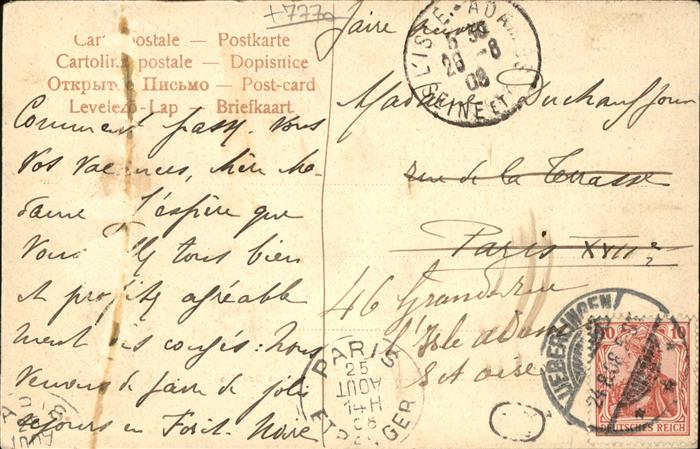 ±777a
Carte postale — Postkarte
Cartolina postale — Dopisnice
Открытое Письмо — Post-card
Levelező-Lap — Briefkaart
Comment passez-vous
vos vacances, chère Ma-
dame J'espère que
vous allez tous bien
et profitez agréable
ment des congés: nous
venons de faire de jolis
séjours en Forêt-Noire
faire suivre
Madame Duchauffour
rue de la Terrasse
Paris XVII e
46 Grande rue
L'Isle Adam
S et Oise
L'ISLE-ADAM
5 30
26 -8
08
SEINE ET
PARIS
25
AOUT
14 H
08
ETRANGER
UEBERLINGEN
10 10
DEUTSCHES REICH